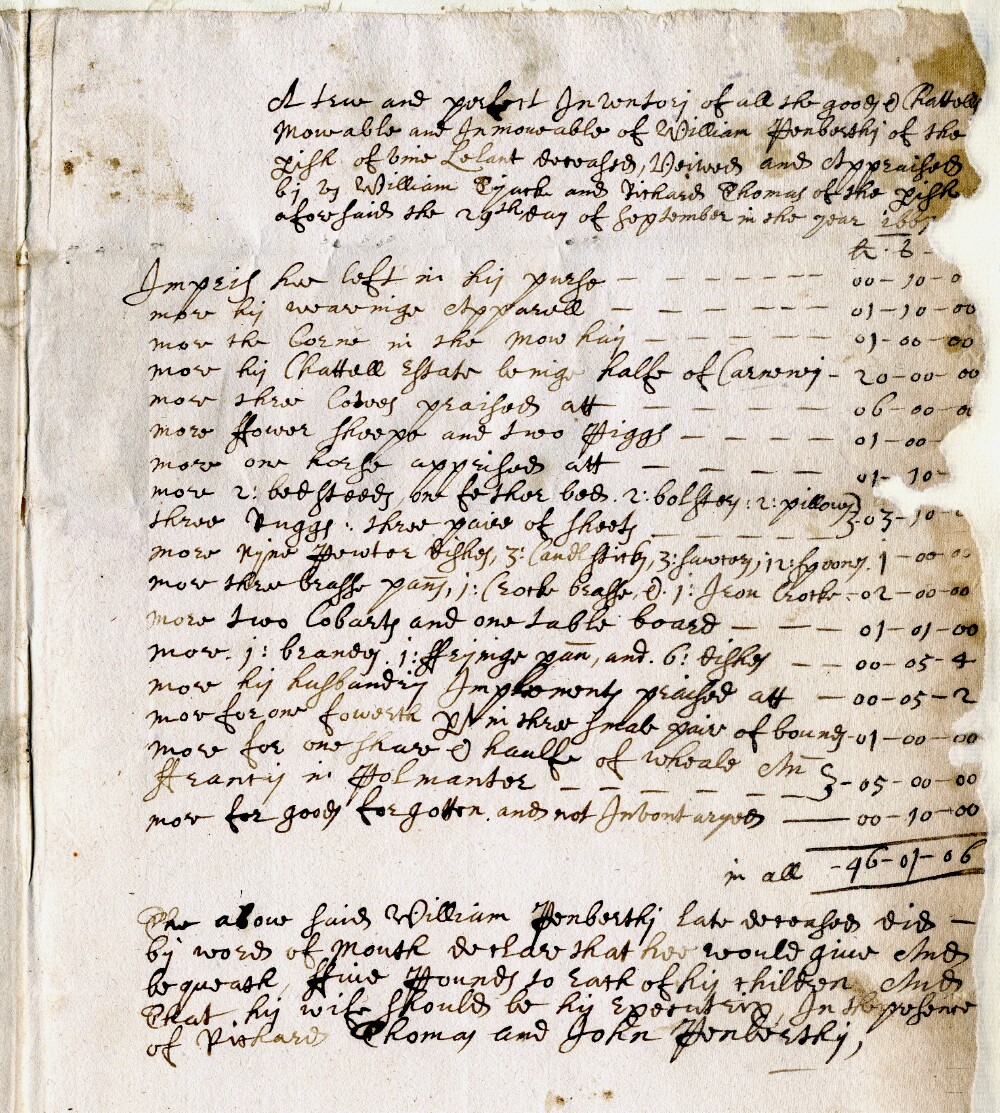 A true and perfect Inventorj of all the goods & Chattells
Moveable and Inmoveable of William Penberthj of the
pish of Vnie Lelant deceased, Veiwed and Appraised
bj vs William Tyacke and Richard Thomas of the pish
aforesaid the 29th day of September in the year 166
li . s -
Impris hee left in his purse - - - - - - 00 - 10 - 0
more his wearinge Apparell - - - - - 01 - 10 - 00
more the Corne in the Mow haij - - - - - 01 - 00 - 00
more his Chattell Estate beinge halfe of Carnewj - 20 - 00 00
more three Cowes praised att - - - - 06 - 00 - 0
more ffower sheepe and two Piggs - - - - - 01 - 00 -
more one horse apprised att - - - - - 01 - 10 -
more 2: bedsteeds, one fether bed. 2: bolsters: 2: pillows
three Ruggs: three paire of sheets - - - - - - 03 - 10 -
more Nyne Pewter dishes, 3: Candlsticks, 3: sawcers, 12: spoones. 1 - 00 - 00
more three brasse pans, 1: Crocke brasse, &. 1: Iron Crocke - 02 - 00 - 00
more two Cobarts and one table board - - - 01 - 01 - 00
more. 1: brandes. 1: ffrijinge pan, and. 6: dishes - - 00 - 05 - 4
more his husbandrij Implements praised att - 00 - 05 - 2
more for one fowerth pt in three smale paire of bounds - 01 - 00 - 00
more for one share & haulfe of wheale An
ffrancis in Polmanter - - - - - - - 05 - 00 - 00
more for goods forgotten and not Inventaryed - 00 - 10 - 00
in all - 46 - 01 - 06
The above said William Penberthj late deceased did -
bij word of Mouth declare that hee would give And
bequeath, ffive Pounds to each of his children And
That his wife should be his Executrix, In the presence
of Richard Thomas and John Penberthj,